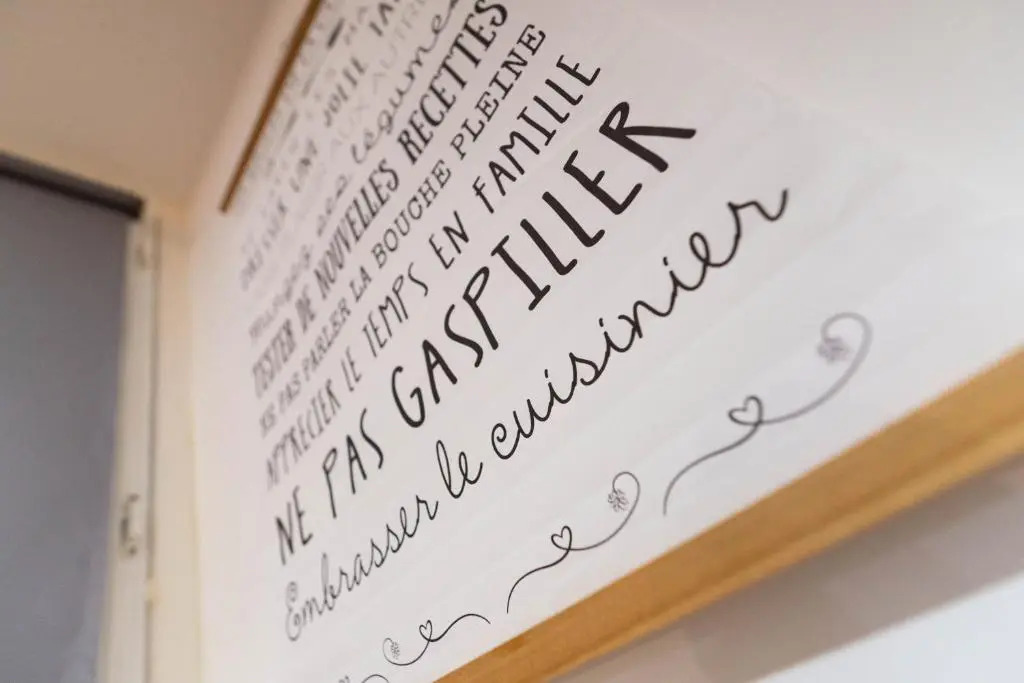 UNE JOLIE
AUX AUTRES
ses légumes
TESTER DE NOUVELLES RECETTES
NE PAS PARLER LA BOUCHE PLEINE
APPRÉCIER LE TEMPS EN FAMILLE
NE PAS GASPILLER
Embrasser le cuisinier